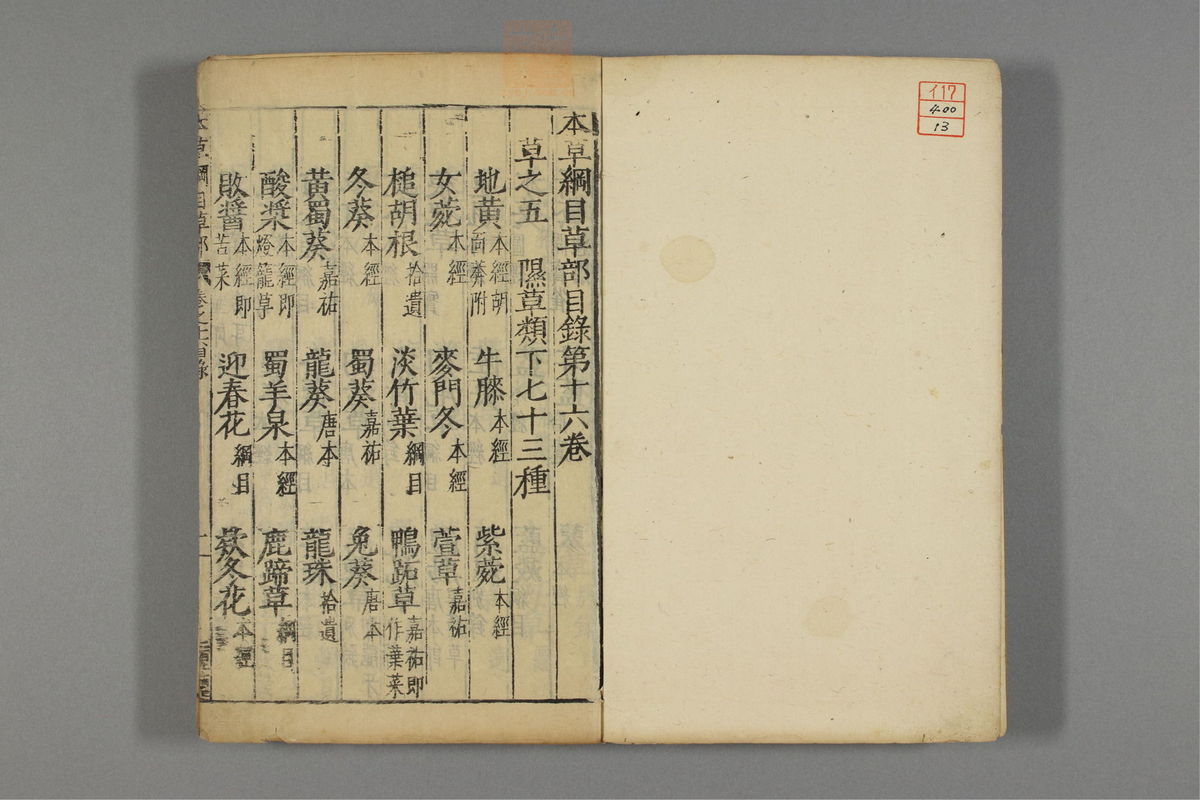 本草綱目草部目錄第十六卷
草之五 隰草類下七十三種
地黃本經胡面莽附 牛膝本經 紫菀本經
女菀本經 麥門冬本經 萱草嘉祐
槌胡根拾遺 淡竹葉綱目 鴨跖草嘉祐即竹葉菜
冬葵本經 蜀葵嘉祐 兔葵唐本
黃蜀葵嘉祐 龍葵唐本 龍珠拾遺
酸漿本經即燈籠草 蜀羊泉本經 鹿蹄草綱目
敗醬本經即苦菜 迎春花綱目 款冬花本經
本草綱目草部
イ17
400
13